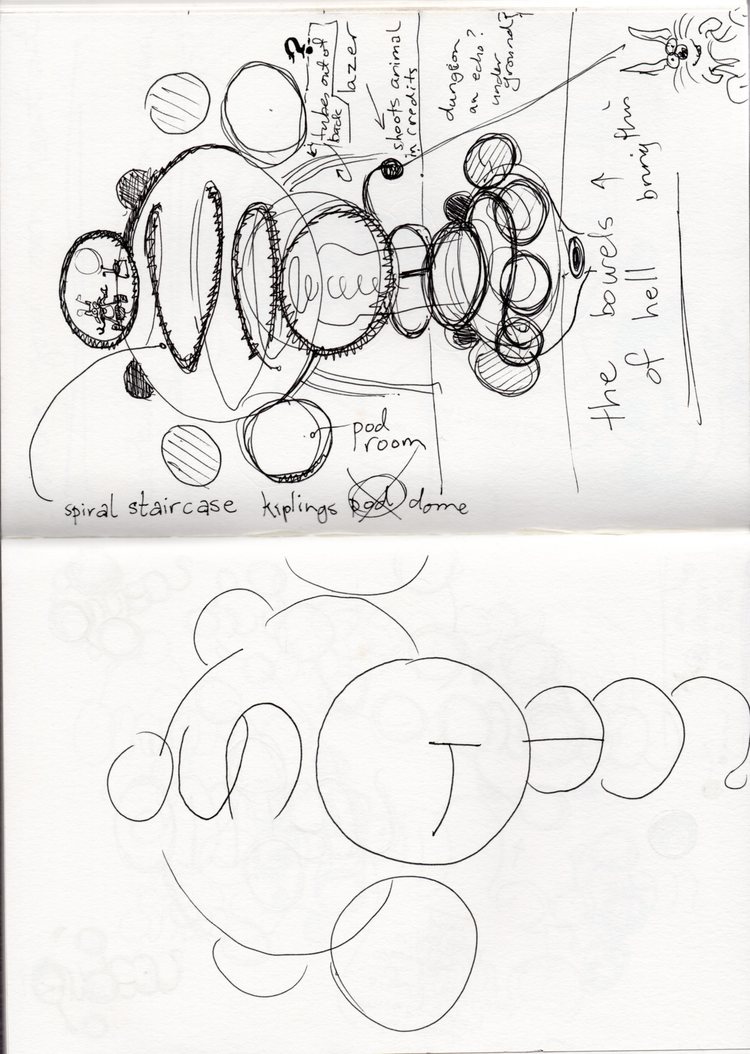 ?
tubes out of
back
lazer
shoots animal
in credits
dungion
an echo?
under
ground?
the bowels ↑
of hell
pod
room
spiral staircase kiplings pod dome